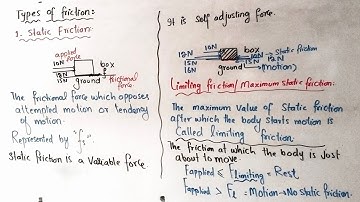 Types of friction:
1. Static Friction:
applied force
10N
12N
15N
box
ground
frictional force
The frictional force which opposes
attempted motion or tendency
of motion.
Represented by "fs"
Static friction is a Variable force
It is Self adjusting force.
10N
12N
15N
16N
box
10N
12N
Static friction
ground
(motion)
Limiting friction/Maximum static friction:
The maximum Value of Static friction
after which the body starts motion is
Called limiting friction.
The friction at which the body is just
about to move.
Fapplied ≤ Flimiting = Rest
Fapplied > FL = Motion → No static friction.